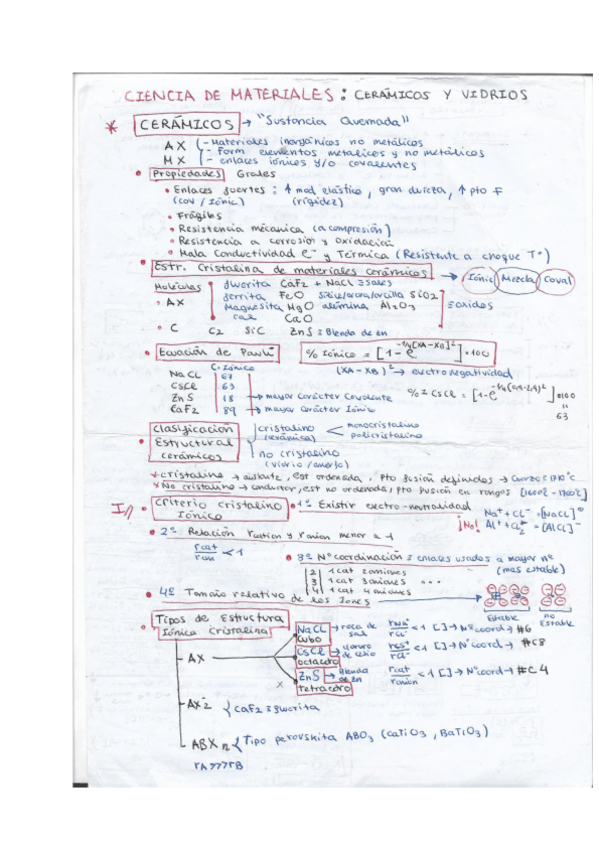 CIENCIA DE MATERIALES: CERÁMICOS Y VIDRIOS
* CERÁMICOS → "Sustancia Quemada"
AX - Materiales inorgánicos no metálicos
MX - Form elementos metalicos y no metálicos
- enlaces iónicos y/o covalentes
• Propiedades Grales
• Enlaces fuertes: ↑ mod elástico, gran dureza, ↑ pto F
(cov / Iónic) (rigidez)
• Frágiles
• Resistencia mecánica (a compresión)
• Resistencia a corrosión y Oxidación
• Mala Conductividad e- y Térmica (Resistente a choque Tº)
• Estr. Cristalina de materiales cerámicos → Iónic Mezcla Coval
Moléculas fluorita CaF2 + NaCl ≡ sales
• AX ferrita FeO SiO2
Magnesita MgO alúmina Al2O3 ≡ óxidos
cal CaO
• C C2 SiC ZnS ≡ Blenda de zn
• Ecuación de Pauli % Iónico = [1-e^-1/4[XA-XB]²]•100
C. Iónico (XA-XB)² → electronegatividad
NaCl 67
CsCl 63
ZnS 18 → mayor Carácter Covalente
CaF2 89 → mayor Carácter Iónic
63
• Clasificación Estructural cerámicos
cristalino (cerámica) monocristalino
policristalino
no cristalino
(vidrio/amorfo)
* No cristalino → conductor, est no ordenada, pto fusión en rangos
I// • Criterio cristalino Iónico • 1º Existir electro-neutralidad
Na+ + Cl- = [NaCl]
¡No!
• 2º Relación rcation y ranion menor a 1
rcat/ran < 1
• 3º Nº coordinación ≡ enlaces usados a mayor nº
(mas estable)
2 1 cat 2 aniones
3 1 cat 3 aniones ...
4 1 cat 4 aniones
• 4º Tamaño relativo de los Iones
Estable no Estable
• Tipos de Estructura Iónica Cristalina
- AX
NaCl → roca de sal <1 [] → Nºcoord → #6
cubo
CsCl → cloruro de cesio <1 [] → Nºcoord → #C8
octaedro
ZnS → Blenda de Zn rcat/ranion <1 [] → Nºcoord → #C4
tetraedro
- AX2 { CaF2 ≡ fluorita
- ABXn { Tipo perovskita ABO3 (CaTiO3, BaTiO3)
rA>>>rB